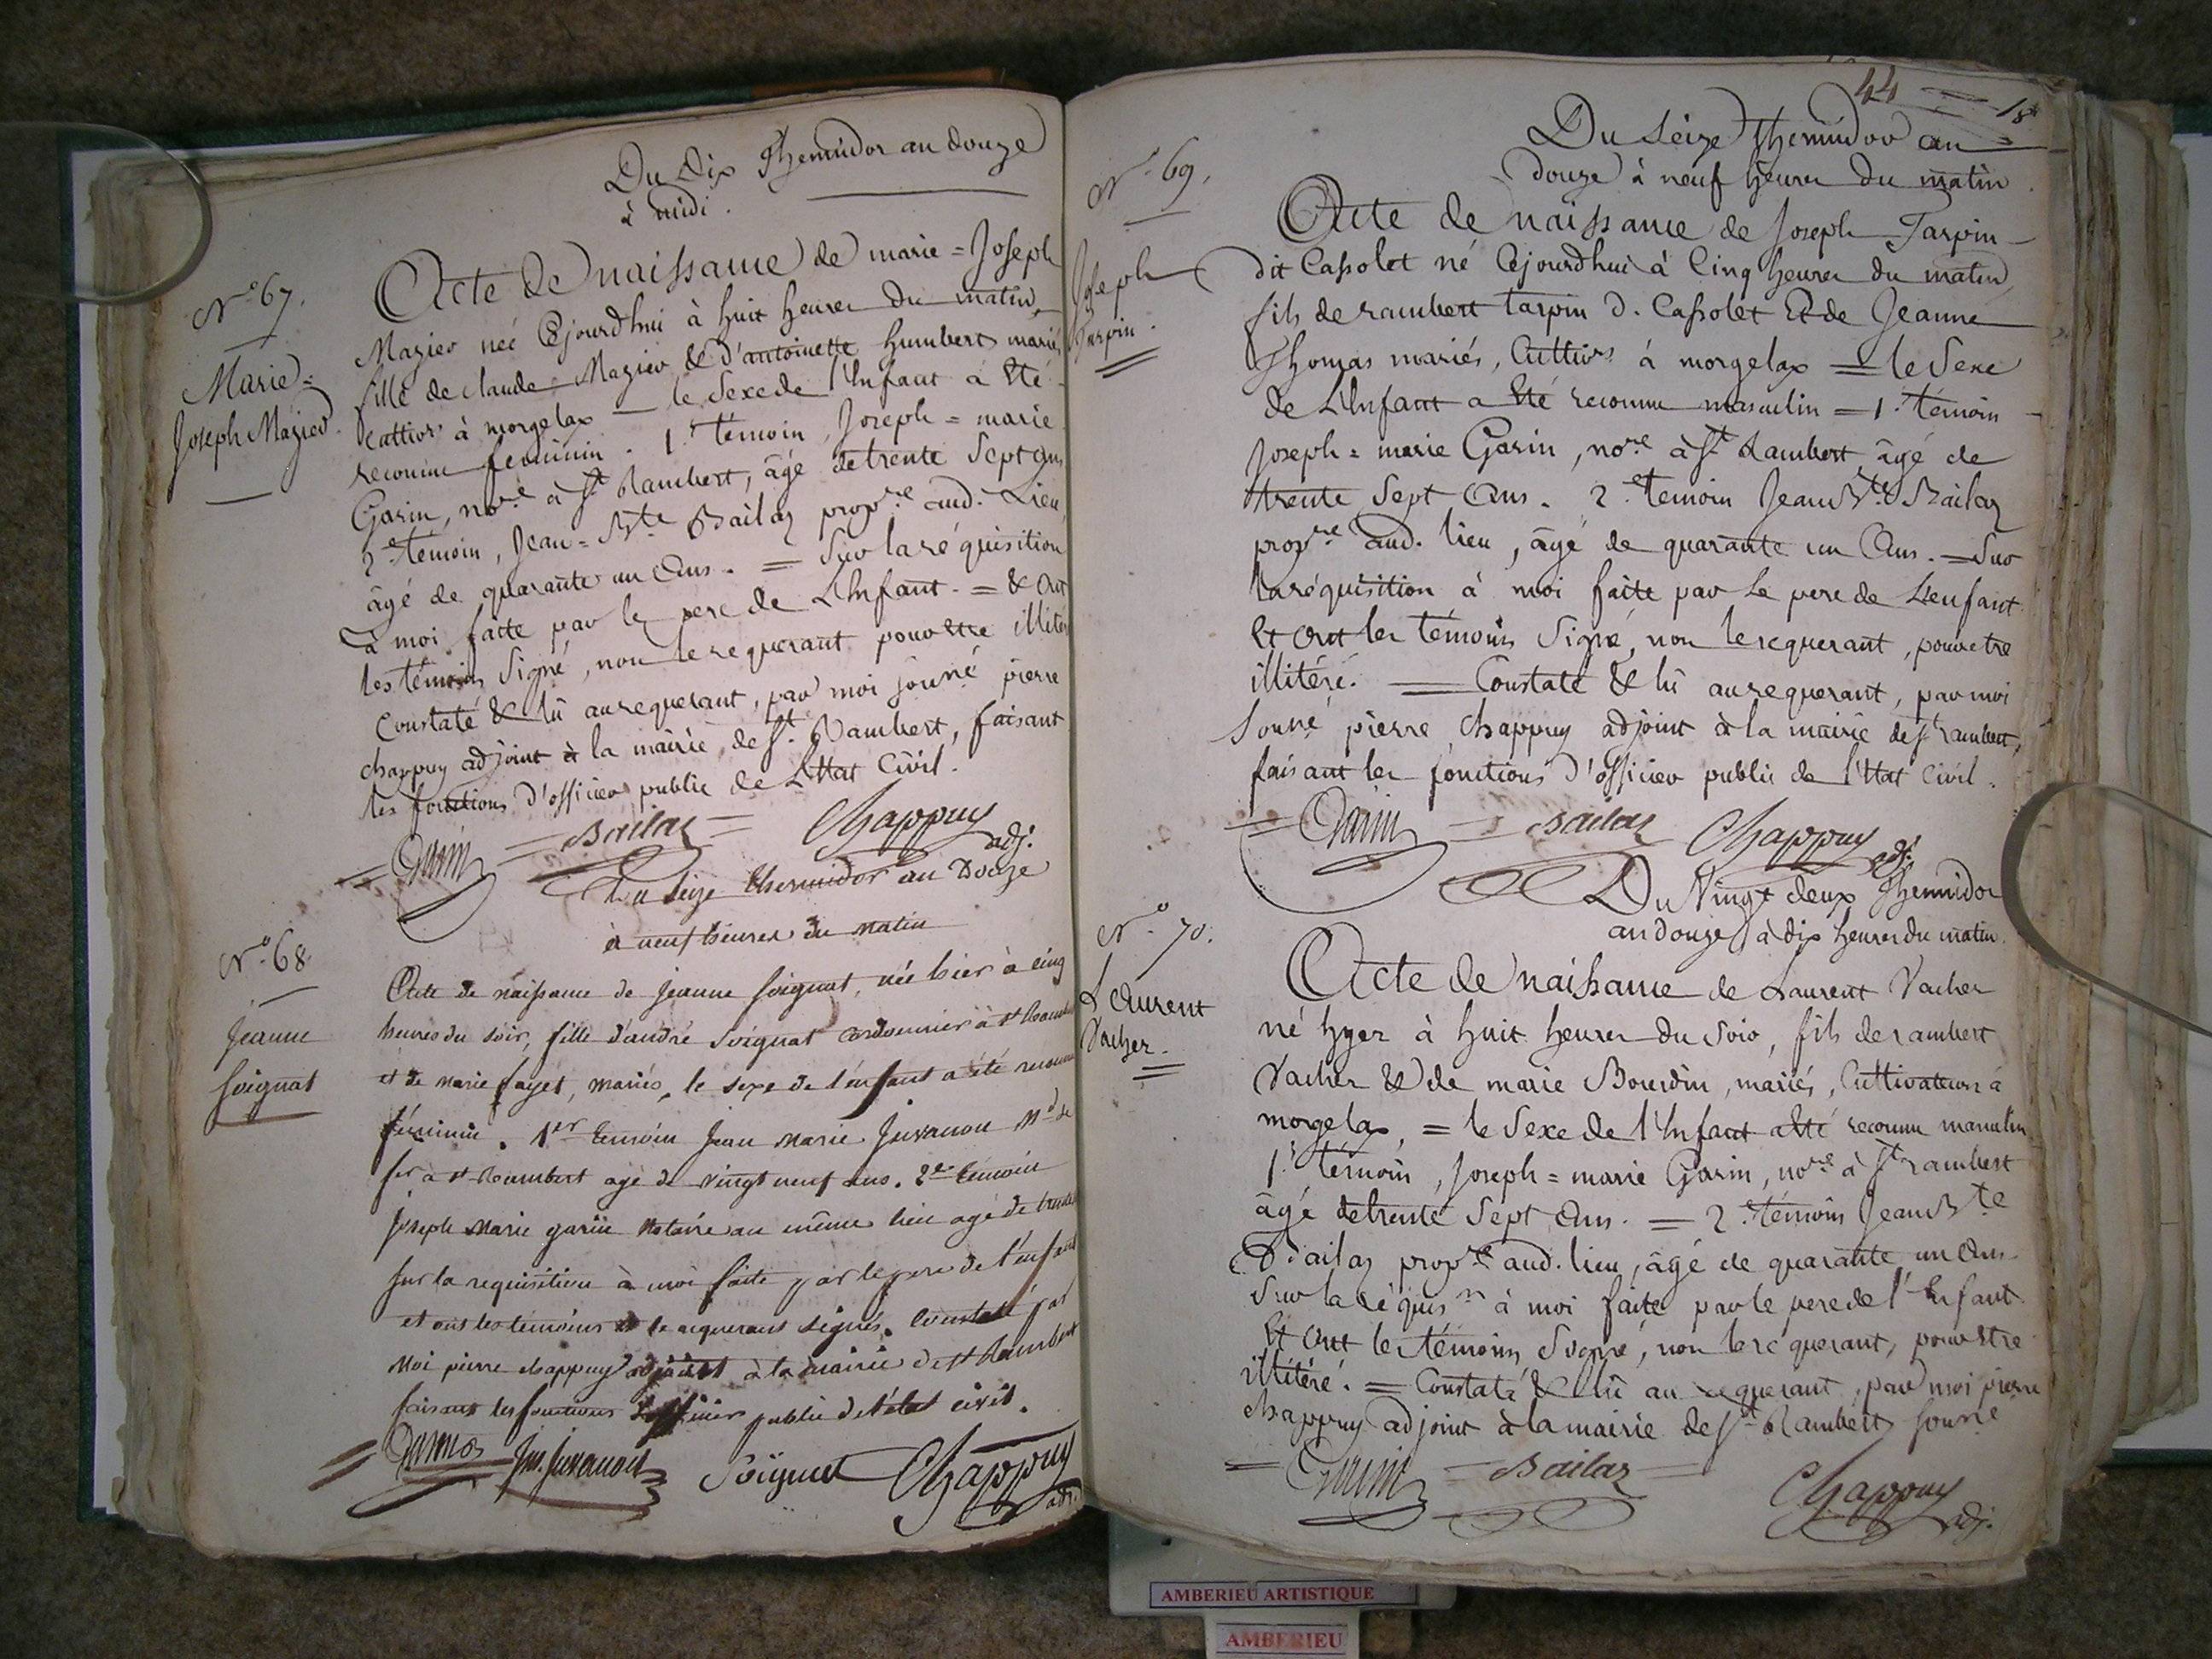 Du Dix Thermidor an douze
à midi.
N.o 67.
Marie=
Joseph Mazier
Acte de naissance de marie=Joseph
Mazier née Cejourdhui à huit heures du matin,
fille de claude Mazier & d'antoinette humbert mariés
Cattivrs à morgelax — le Sexe de l'Enfant a Eté
reconnu feminin. 1.r témoin, Joseph=marie
Garin, nore à St Rambert, âgé detrente Sept ans
2.e témoin, Jean=Bte Bailaz propre aud. Lieu,
âgé de quarante un ans. = Sur la réquisition
à moi faite par le pere de L'Enfant. = & Ont
les témoins Signé, non le requerant pour Etre illitéré
Constaté & lû au requerant, par moi sousné pierre
chappuy adjoint à la mairie, de St. Rambert, faisant
les fonctions d'officier public de L'Etat Civil.
= Garin = Bailaz = Chappuy
adj.
N.o 68.
Jeanne
Soignat
Du Seize thermidor an Douze
à neuf heures du matin
Acte de naissance de Jeanne Soignat, née hier à cinq
heures du soir, fille d'andré Soignat Cordonnier à st Rambert
et de marie fayet, mariés, le sexe de l'enfant a été reconnu
féminin. 1er témoin Jean Marie Juvanon Md de
fer à st Rambert agé de vingt neuf ans. 2e témoin
Joseph Marie garin Notaire au même lieu agé de trente
Sur la requisition à moi faite par le pere de l'enfant
et ont les témoins & le requerant signés. Constaté par
Moi pierre chappuy adjoint à la mairie de st Rambert
faisant les fonctions d'officier public de l'état civil.
Juvanon Soignat Chappuy
adj.
44 18
N.o 69.
Joseph
Tarpin.
Du Seize Thermidor an
douze à neuf heures du matin.
Acte de naissance de Joseph Tarpin
dit Cassolet né Cejourdhui à Cinq heures du matin,
fils de rambert tarpin d. Cassolet Et de Jeanne
Thomas mariés, Cultivrs à morgelax = le Sexe
de L'Enfant a Eté reconnu masculin = 1.r témoin
Joseph=marie Garin, nore à St Rambert âgé de
trente Sept ans. 2.e temoin Jean Bte Bailaz
propre aud. lieu, âgé de quarante un ans. = Sur
la réquisition à moi faite par le pere de L'enfant
Et Ont les témoins Signé, non le requerant, pour etre
illitéré. = Constaté & lû au requerant, par moi
Sousné pierre chappuy adjoint à la mairie de St rambert,
faisant les fonctions d'officier public de l'Etat Civil.
= Garin = Bailaz Chappuy
adj.
N.o 70.
Laurent
Vacher.
Du Vingt deux Thermidor
an douze à dix heures du matin.
Acte de naissance de Laurent Vacher
né hyer à huit heures du Soir, fils de rambert
Vacher & de marie Bourdin, mariés, Cultivateurs à
morgelax, = le Sexe de l'Enfant a Eté reconnu masculin
1.r témoin, Joseph=marie Garin, nore à St rambert
âgé detrente Sept ans. = 2.e témoin Jean Bte
Bailaz propre aud. lieu, âgé de quarante un ans
Sur la réquisn à moi faite par le pere de l'Enfant.
Et Ont les témoins Signé, non le requerant, pour Etre
illitéré. = Constaté & lû au requerant, par moi pierre
chappuy adjoint à la mairie de St Rambert sousné
= Garin = Bailaz — Chappuy
adj.
AMBERIEU ARTISTIQUE
AMBERIEU